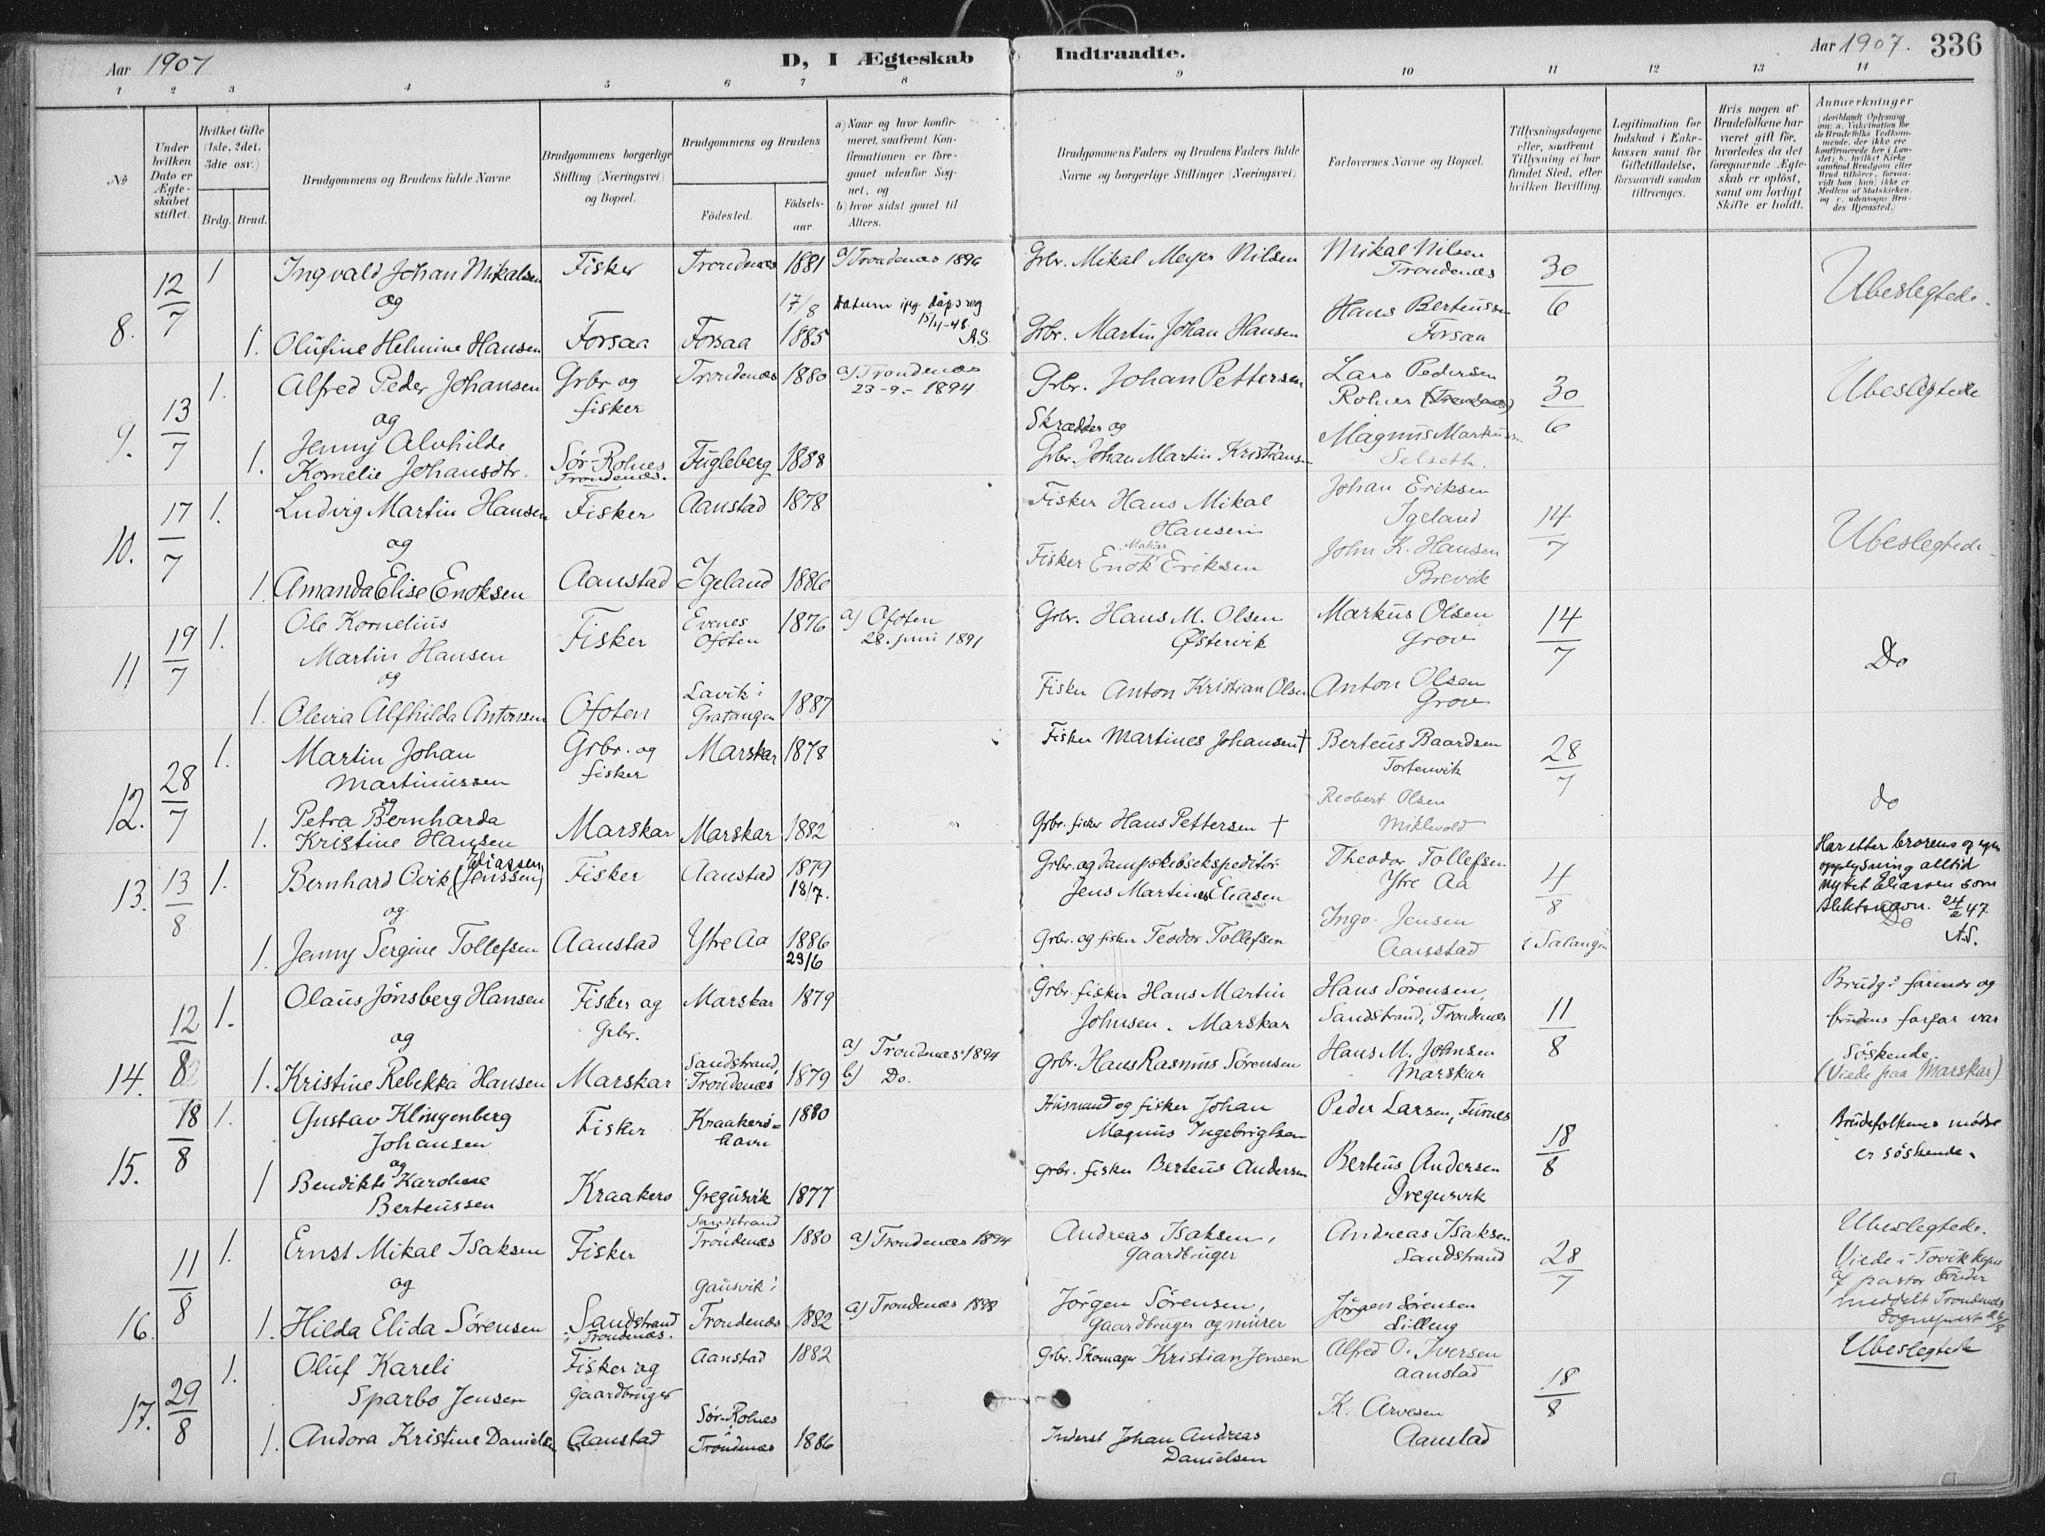 Aar 1907
D, I Ægteskab Indtraadte.
Aar 1907. 336
1 2 3 4 5 6 7 8 9 10 11 12 13 14
No
Under hvilken Dato er Ægteskabet stiftet.
Hvilket Gifte (1ste, 2det, 3die osv.)
Brdg. Brud.
Brudgommens og Brudens fulde Navne
Brudgommens borgerlige Stilling (Næringsvei) og Bopæl.
Brudgommens og Brudens
Födested.
Födselsaar.
a) Naar og hvor konfirmeret, saafremt Konfirmationen er foregaaet udenfor Sognet, og
b) hvor sidst gaaet til Alters.
Brudgommens Faders og Brudens Faders fulde Navne og borgerlige Stillinger (Næringsvei)
Forlovernes Navne og Bopæl.
Tillysningsdagene eller, saafremt Tillysning ei har fundet Sted, efter hvilken Bevilling.
Legitimation for Indskud i Enkekassen samt for Giftetilladelse, forsaavidt saadan tiltrænges.
Hvis nogen af Brudefolkene har været gift før, hvorledes da det foregaaende Ægteskab er oplöst, samt om lovligt Skifte er holdt.
Anmærkninger
(deriblandt Oplysning om: a. Vakcination for de Brudefolks Vedkommende, der ikke ere konfirmerede her i Landet; b. hvilket Kirkesamfund Brudgom eller Brud tilhører, forsaavidt han (hun) ikke er Medlem af Statskirken, og c. udensogns Brudes Hjemsted.)
8. 12/7 1 Ingvald Johan Mikalsen Fisker Trondenæs 1881 a) Trondenæs 1896 Grbr. Mikal Meyer Nilsen Mikal Nilsen Trondenæs 30/6 Ubeslegtede.
og 17/8 Datum ifg. dåpsreg 15/11-48. AS.
1. Olufine Helmine Hansen Forsaa Forsaa 1885 Grbr. Martin Johan Hansen Hans Berteussen Forsaa
9. 13/7 1. Alfred Peder Johansen Grbr og fisker Trondenæs 1880 a) Trondenæs 23-9.- 1894 Grbr. Johan Pettersen Lars Pedersen Rolnes (Trondenæs) 30/6 Ubeslegtede
og
1. Jenny Alvhilde Kornelie Johansdtr. Sör-Rolnes Trondenæs. Fugleberg 1888 Skrædder og Grbr. Johan Martin Kristiansen Magnus Markussen Selseth.
10. 17/7 1. Ludvig Martin Hansen Fisker Aanstad 1878 Fisker Hans Mikal Hansen Johan Eriksen Igeland 14/7 Ubeslegtede.
og
1. Amanda Elise Enoksen Aanstad Igeland 1886 Fisker Enok Eriksen John K. Hansen Brevik
11 19/7 1. Ole Kornelius Martin Hansen Fisker Evenes Ofoten 1876 a) Ofoten 28. juni 1891 Grbr. Hans M. Olsen Østervik Markus Olsen Grov 14/7 Do
og
1. Olevia Alfhilda Antonsen Ofoten Lavik i Gratangen 1887 Fisker Anton Kristian Olsen Anton Olsen Grov
12. 28/7 1. Martin Johan Martinussen Grbr. og fisker Marskar 1878 Fisker Martines Johansen † Berteus Baardsen Tortenvik 28/7 do
og
1. Petra Bernharda Kristine Hansen Marskar Marskar 1882 Grbr. fisker Hans Pettersen † Reobert Olsen Miklevold
13. 13/8 1. Bernhard Ovik (Jenssen) Eliassen Fisker Aanstad 1879 18/7. Grbr. og Dampskibsekspeditör Jens Martines Eliasen Theodor Tollefsen Ytre Aa 4/8 Har etter brorens og egen opplysning alltid nyttet Eliassen som slektsnavn. 24/2 47. A.S.
og Do
1. Jenny Sergine Tollefsen Aanstad Ytre Aa 1886 29/6 Grbr. og fisker Teodor Tollefsen Ingv. Jensen Aanstad i Salangen
14. 12/8 1. Olaus Jönsberg Hansen Fisker og Grbr. Marskar 1879 Grbr. fisker Hans Martin Johnsen. Marskar Hans Sørensen, Sandstrand, Trondenæs 11/8 Brudg.s farmor og brudens farfar var Söskende.
og
1. Kristine Rebekka Hansen Marskar Sandstrand, Trondenæs 1879 a) Trondenæs 1894 b) Do. Grbr. Hans Rasmus Sörensen Hans M. Johnsen Marskar (Viede paa Marskar)
15. 18/8 1. Gustav Klingenberg Johansen Fisker Kraakeröhavn 1880 Husmand og fisker Johan Magnus Ingebrigtsen Peder Larsen, Furnes 18/8 Brudefolkenes mödre er söskende.
og
1 Bendikte Karoline Berteussen Kraakerö Gregusvik 1877 Grbr. fisker Berteus Andersen Berteus Andersen Gregusvik
16. 11/8 1. Ernst Mikal Isaksen Fisker Sandstrand Trondenæs 1880 a) Trondenæs 1894 Andreas Isaksen, Gaardbruger Andreas Isaksen Sandstrand 28/7 Ubeslegtede.
og Viede i Torvik kapel af pastor meddelt Trondenæs Sognepræst 26/8
1. Hilda Elida Sörensen Sandstrand i Trondenæs. Gausvik i Trondenæs 1882 a) Trondenæs 1898 Jörgen Sörensen, Gaardbruger og murer Jörgen Sörensen
17. 29/8 1. Oluf Kareli Sparbo Jensen Fisker og gaardbruger Aanstad 1882 Grbr. Skomager Kristian Jensen Alfred O. Iversen Aanstad 18/8 Ubeslegtede
1. Andora Kristine Danielsen Aanstad Sör-Rolnes i Trondenæs 1886 Inderst Johan Andreas Danielsen K. Arvesen Aanstad